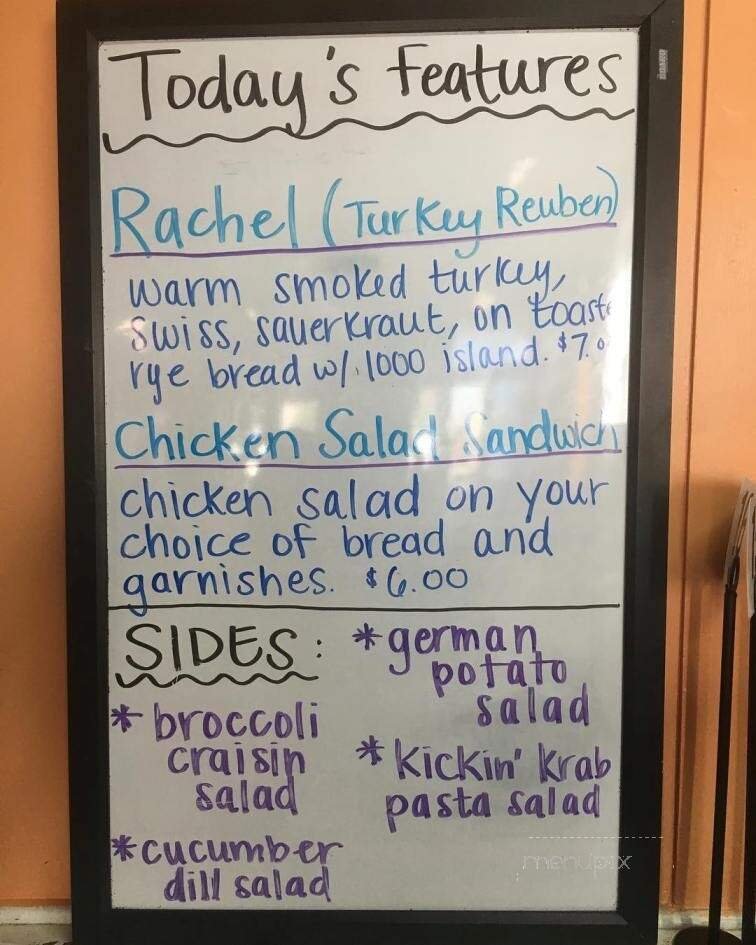 Today's Features
Rachel (Turkey Reuben)
warm smoked turkey,
swiss, sauerkraut, on
rye bread w/ 1000 island.
Chicken Salad Sandwich
chicken salad on your
choice of bread and
garnishes. $6.00
SIDES:
* broccoli
craisin
salad
* cucumber
dill salad
* german
potato
salad
* kickin' krab
pasta salad
menupix